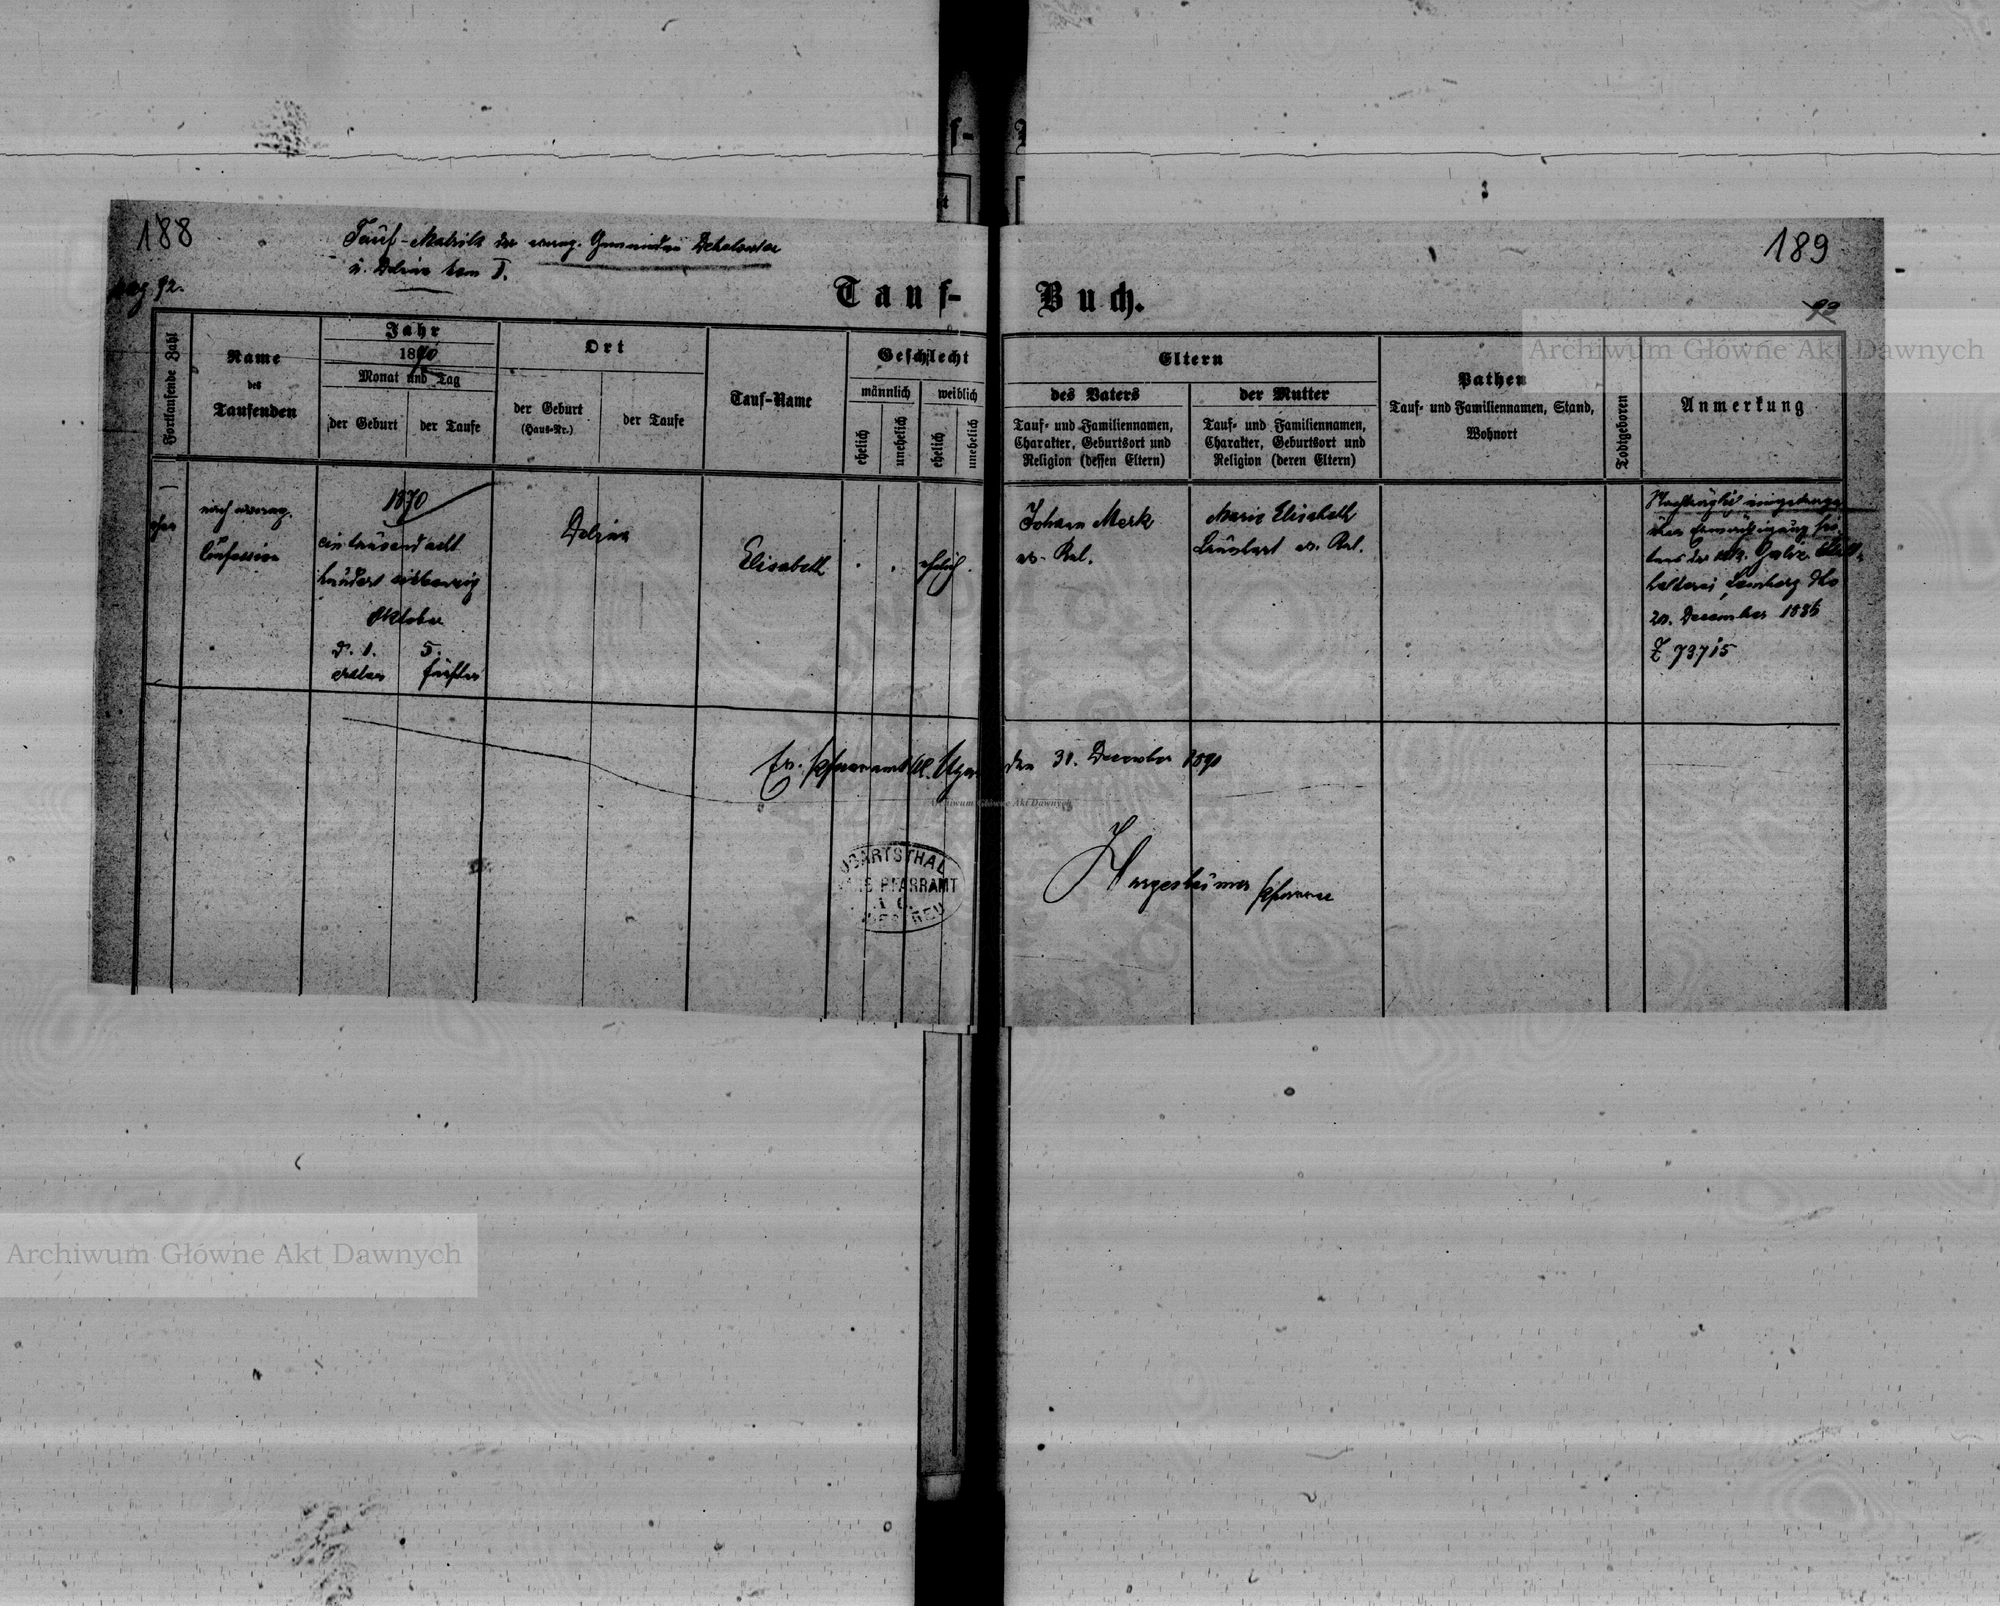 188
Tauf-Matrik der evang. Gemeinden
u. Dolina tom I.
pag. 92.
189
92
Tauf- Buch.
Fortlaufende Zahl
Name
des
Taufenden
Jahr
1870
Monat und Tag
der Geburt
der Taufe
Ort
der Geburt
(Haus-Nr.)
der Taufe
Tauf-Name
Geschlecht
männlich
weiblich
ehelich
unehelich
ehelich
unehelich
Eltern
des Vaters
Tauf- und Familiennamen,
Charakter, Geburtsort und
Religion (dessen Eltern)
der Mutter
Tauf- und Familiennamen,
Charakter, Geburtsort und
Religion (deren Eltern)
Pathen
Tauf- und Familiennamen, Stand,
Wohnort
Todtgeboren
Anmerkung
nach evang.
Confession
1870
ein tausend acht
hundert siebenzig
Oktober
d. 1.
ersten
5.
fünften
Dolina
Elisabeth
ehelich
Johann Merk
ev. Rel.
Marie Elisabeth
ev. Rel.
Nachträglich eingetragen
über Ermächtigung sei-
tens der k.k. Galiz. Statt-
halterei Lemberg dto
December 1886
Z 73715
Ev. Pfarramt den 31. December 1890
Pfarrer
UGARTSTHAL
PFARRAMT
Archiwum Główne Akt Dawnych
Archiwum Główne Akt Dawnych
Archiwum Główne Akt Dawnych